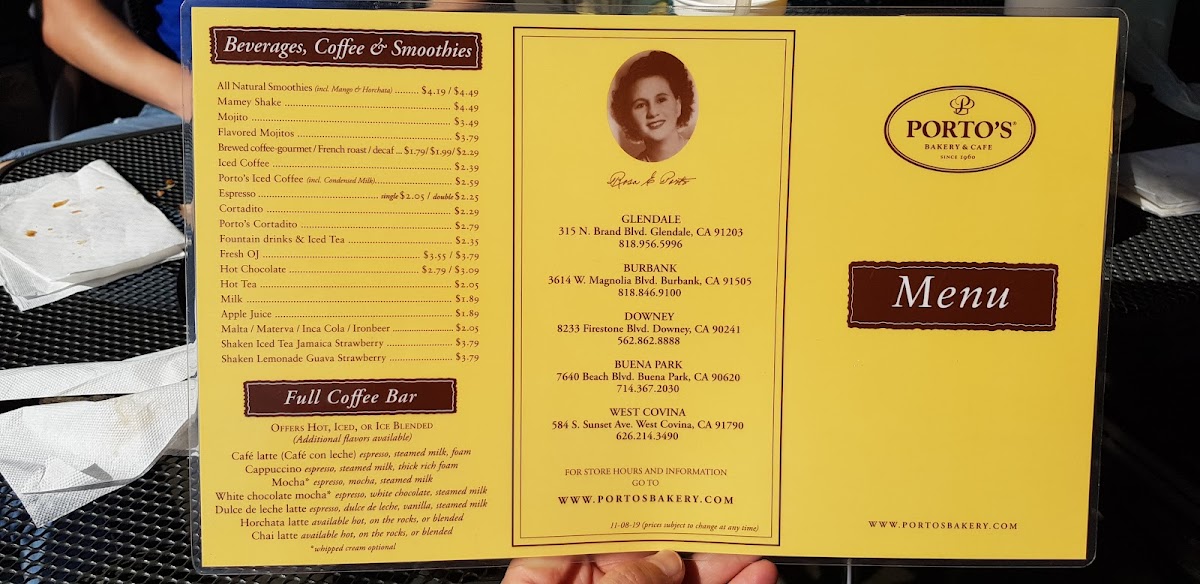 Beverages, Coffee & Smoothies
All Natural Smoothies (incl. Mango & Horchata) ......... $4.19 / $4.49
Mamey Shake ........ $4.49
Mojito ........ $3.49
Flavored Mojitos ........ $3.79
Brewed coffee-gourmet / French roast / decaf ... $1.79/ $1.99/ $2.29
Iced Coffee ........ $2.39
Porto's Iced Coffee (incl. Condensed Milk)........ $2.59
Espresso ........ single $2.05 / double $2.25
Cortadito ........ $2.29
Porto's Cortadito ........ $2.79
Fountain drinks & Iced Tea ........ $2.35
Fresh OJ ........ $3.55 / $3.79
Hot Chocolate ........ $2.79 / $3.09
Hot Tea ........ $2.05
Milk ........ $1.89
Apple Juice ........ $1.89
Malta / Materva / Inca Cola / Ironbeer ........ $2.05
Shaken Iced Tea Jamaica Strawberry ........ $3.79
Shaken Lemonade Guava Strawberry ........ $3.79
Full Coffee Bar
Offers Hot, Iced, or Ice Blended
(Additional flavors available)
Café latte (Café con leche) espresso, steamed milk, foam
Cappuccino espresso, steamed milk, thick rich foam
Mocha* espresso, mocha, steamed milk
White chocolate mocha* espresso, white chocolate, steamed milk
Dulce de leche latte espresso, dulce de leche, vanilla, steamed milk
Horchata latte available hot, on the rocks, or blended
Chai latte available hot, on the rocks, or blended
*whipped cream optional
Rosa E Porto
GLENDALE
315 N. Brand Blvd. Glendale, CA 91203
818.956.5996
BURBANK
3614 W. Magnolia Blvd. Burbank, CA 91505
818.846.9100
DOWNEY
8233 Firestone Blvd. Downey, CA 90241
562.862.8888
BUENA PARK
7640 Beach Blvd. Buena Park, CA 90620
714.367.2030
WEST COVINA
584 S. Sunset Ave. West Covina, CA 91790
626.214.3490
FOR STORE HOURS AND INFORMATION
GO TO
WWW.PORTOSBAKERY.COM
11-08-19 (prices subject to change at any time)
P
PORTO'S®
BAKERY & CAFE
SINCE 1960
Menu
WWW.PORTOSBAKERY.COM